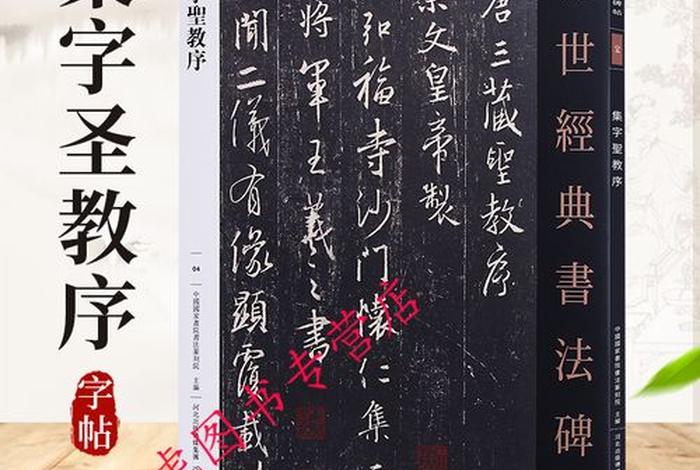 集字圣教序
字帖
聖教序
04
中國國家畫院書法篆刻院 主編
唐三藏聖教序
文皇帝製
弘福寺沙門懷仁集
將軍王羲之書
聞二儀有像顯覆載
世經典書法碑
集字聖教序
中國國家畫院書法篆刻院 主編
图书专营店